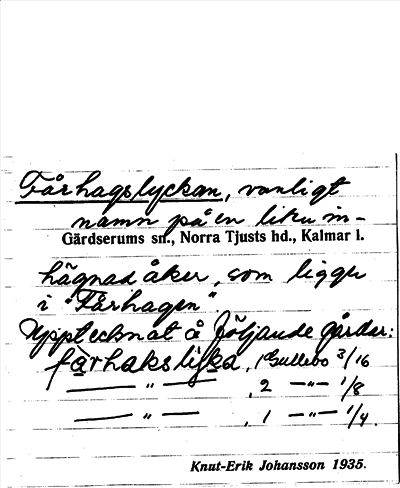 Fårhagslyckan, vanligt
namn på en liten in-
Gärdserums sn., Norra Tjusts hd., Kalmar l.
hägnad åker, som ligger
i "Fårhagen"
Upptecknat å följande gårdar:
fårhakslyka, 1 Gullebo 3/16
— " — , 2 —"— 1/8
— " — , 1 —"— 1/4.
Knut-Erik Johansson 1935.